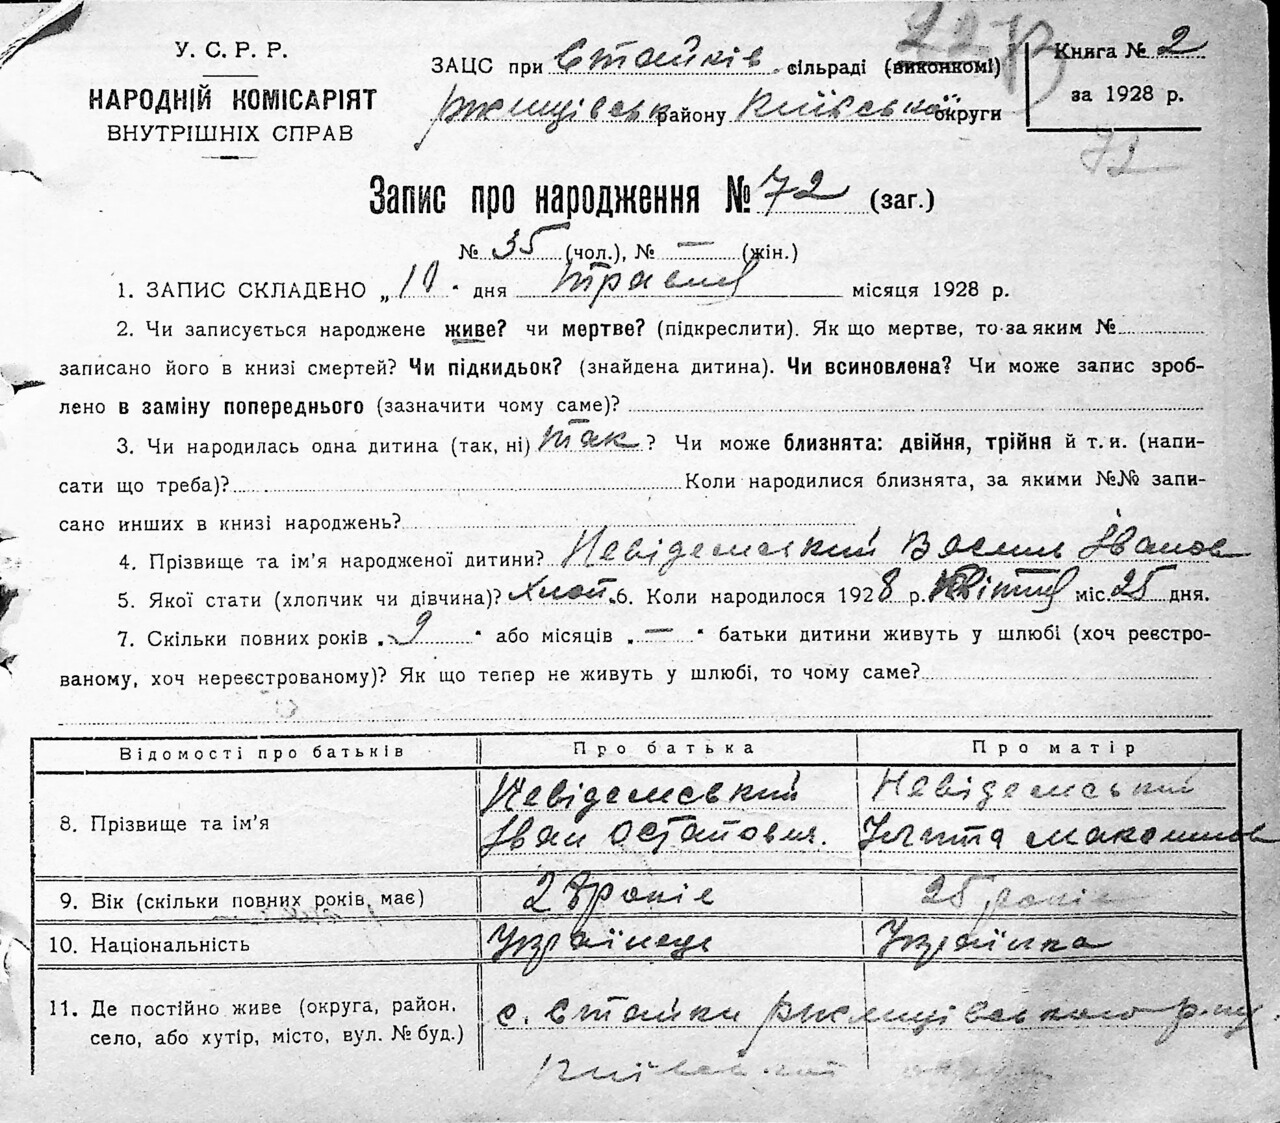 У. С. Р. Р.
НАРОДНІЙ КОМІСАРІЯТ
ВНУТРІШНІХ СПРАВ
ЗАЦС при Стайків сільраді (виконкомі)
Ржищівськ району Київської округи
22
Книга № 2
за 1928 р.
72
Запис про народження № 72 (заг.)
№ 35 (чол.), № — (жін.)
1. ЗАПИС СКЛАДЕНО „10" дня травня місяця 1928 р.
2. Чи записується народжене живе? чи мертве? (підкреслити). Як що мертве, то за яким №
записано його в книзі смертей? Чи підкидьок? (знайдена дитина). Чи всиновлена? Чи може запис зроб-
лено в заміну попереднього (зазначити чому саме)?
3. Чи народилась одна дитина (так, ні) так ? Чи може близнята: двійня, трійня й т. и. (напи-
сати що треба)? Коли народилися близнята, за якими №№ запи-
сано инших в книзі народжень?
4. Прізвище та ім'я народженої дитини? Невідемський Василь Іванов
5. Якої стати (хлопчик чи дівчина)? Хлоп. 6. Коли народилося 1928 р. Квітня міс. 25 дня.
7. Скільки повних років „ 9 " або місяців „ — " батьки дитини живуть у шлюбі (хоч реєстро-
ваному, хоч нереєстрованому)? Як що тепер не живуть у шлюбі, то чому саме?
Відомості про батьків Про батька Про матір
8. Прізвище та ім'я Невідемський Іван Остапович. Невідемський Максимов
9. Вік (скільки повних років має) 28 років 25 років
10. Національність Українець Українка
11. Де постійно живе (округа, район, село, або хутір, місто, вул. № буд.) с. Стайки Ржищівського р-ну
Київської округи